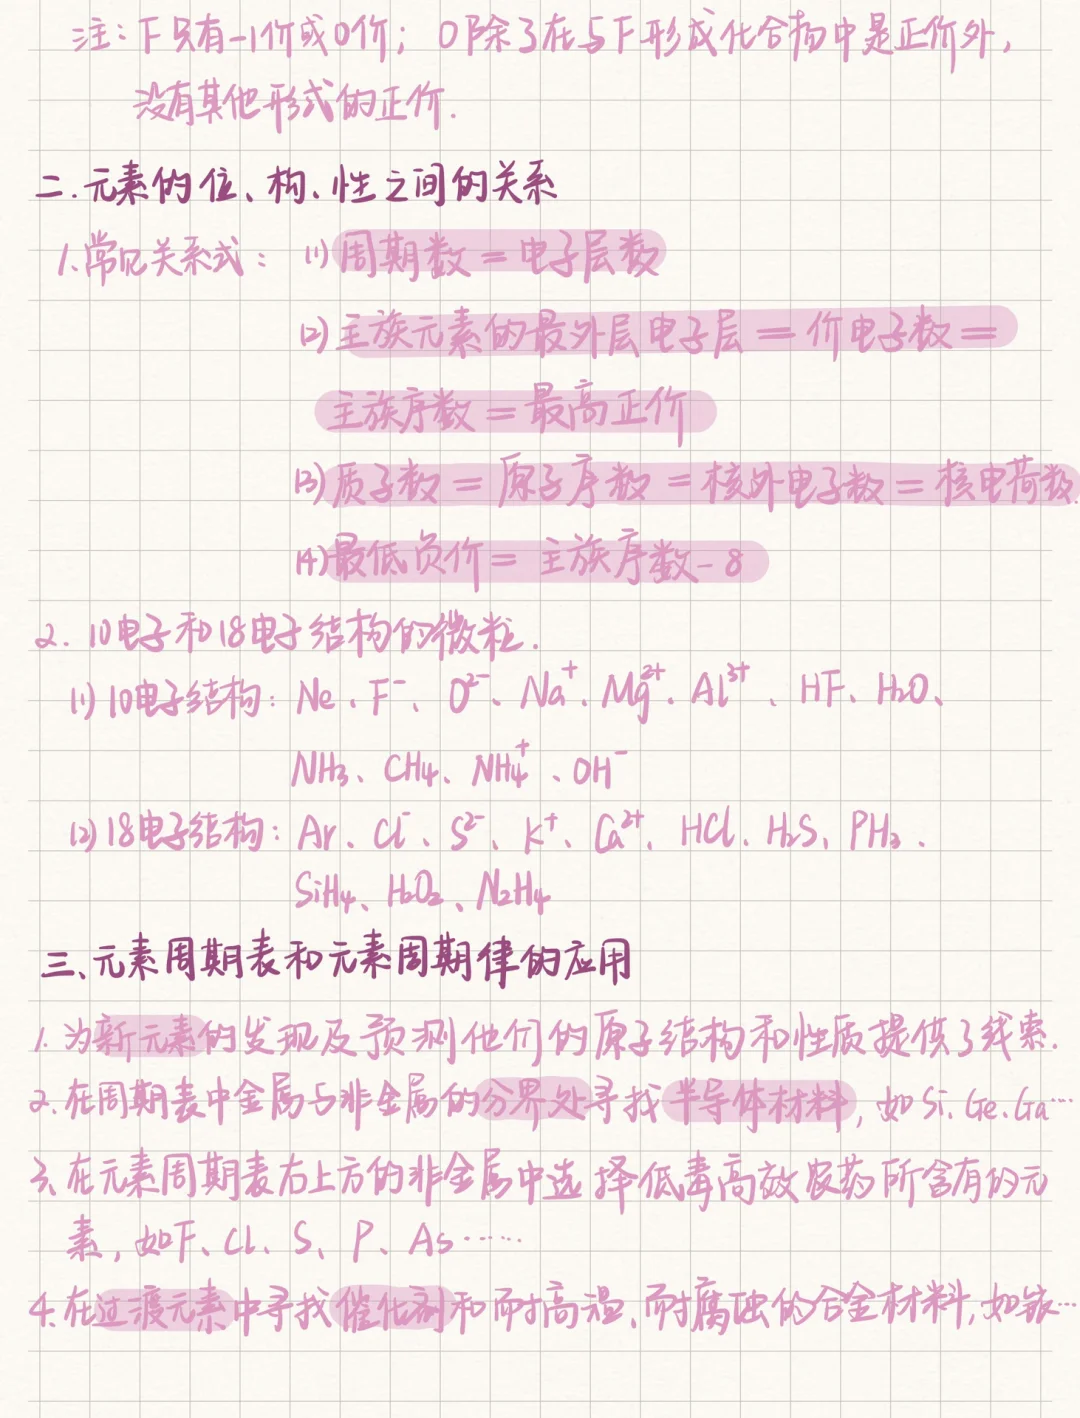 注：F只有-1价或0价；O除了在与F形成化合物中是正价外，
没有其他形式的正价.
二.元素的位、构、性之间的关系
1.常见关系式： (1)周期数=电子层数
(2)主族元素的最外层电子层=价电子数=
主族序数=最高正价
(3)质子数=原子序数=核外电子数=核电荷数.
(4)最低负价=主族序数-8
2. 10电子和18电子结构的微粒.
(1)10电子结构：Ne、F⁻、O²⁻、Na⁺、Mg²⁺、Al³⁺、HF、H₂O、
NH₃、CH₄、NH₄⁺、OH⁻
(2)18电子结构：Ar、Cl⁻、S²⁻、K⁺、Ca²⁺、HCl、H₂S、PH₃、
SiH₄、H₂O₂、N₂H₄
三、元素周期表和元素周期律的应用
1.为新元素的发现及预测他们的原子结构和性质提供了线索.
2.在周期表中金属与非金属的分界处寻找半导体材料，如Si、Ge、Ga…
3.在元素周期表右上方的非金属中选择低毒高效农药所含有的元
素，如F、Cl、S、P、As……
4.在过渡元素中寻找催化剂和耐高温、耐腐蚀的合金材料，如镓…